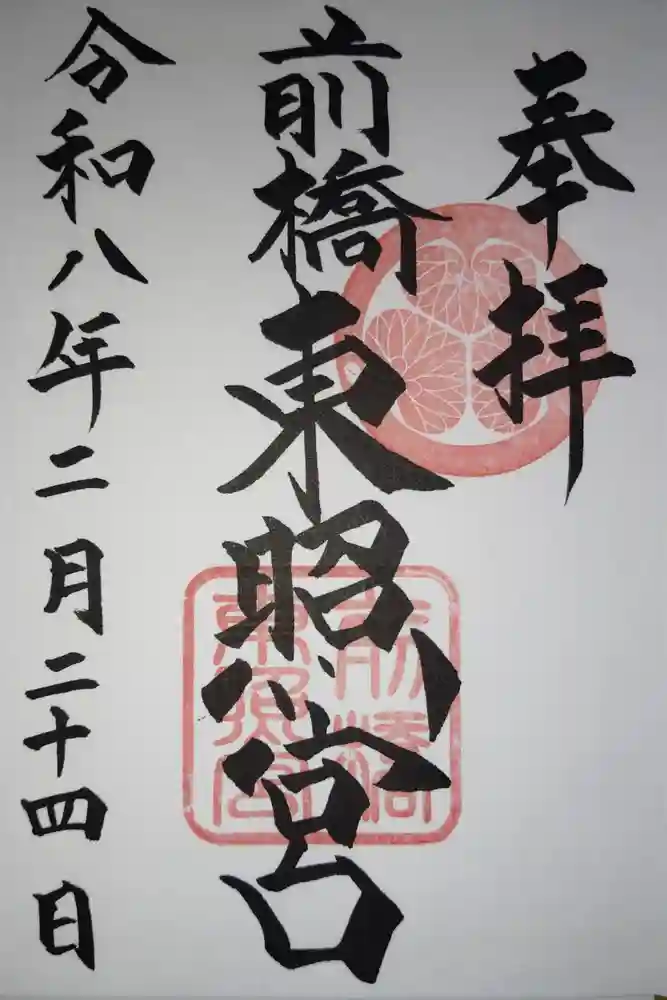 奉拝
前橋東照宮
前橋
東照宮
令和八年二月二十四日